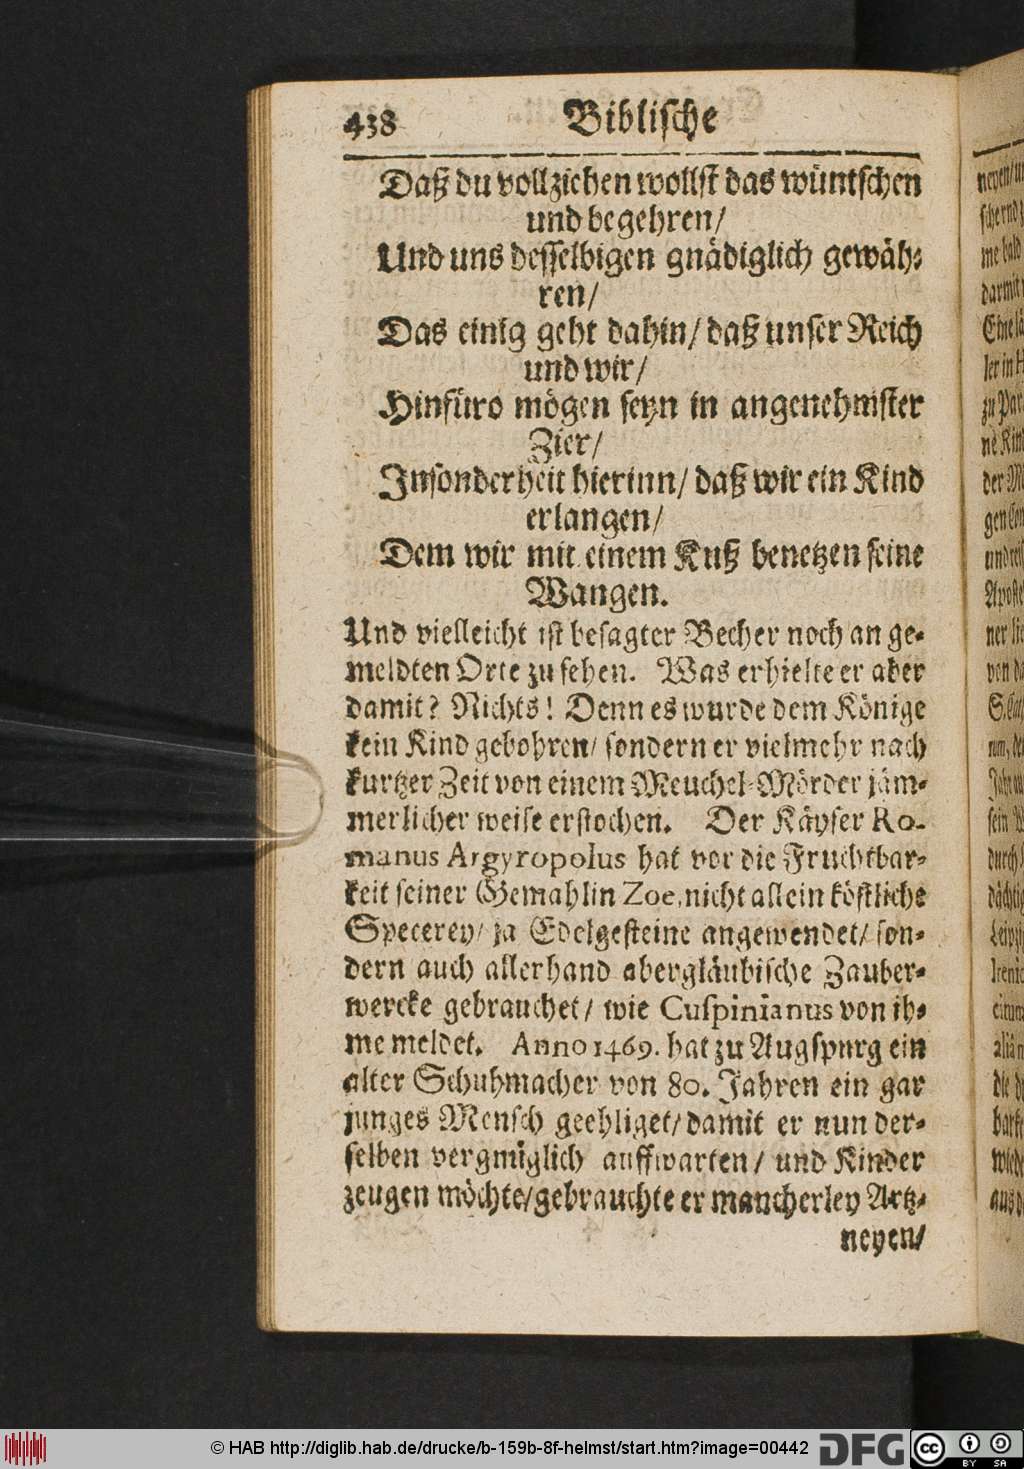 438 Biblische
Daß du vollziehen wollst das wüntschen
und begehren/
Und uns desselbigen gnädiglich gewäh-
ren/
Das einig geht dahin/ daß unser Reich
und wir/
Hinfüro mögen seyn in angenehmster
Zier/
Insonderheit hierinn/ daß wir ein Kind
erlangen/
Dem wir mit einem Kuß benetzen seine
Wangen.
Und vielleicht ist besagter Becher noch an ge-
meldten Orte zu sehen. Was erhielte er aber
damit? Nichts! Denn es wurde dem Könige
kein Kind gebohren/ sondern er vielmehr nach
kurtzer Zeit von einem Meuchel-Mörder jäm-
merlicher weise erstochen. Der Käyser Ro-
manus Argyropolus hat vor die Fruchtbar-
keit seiner Gemahlin Zoe, nicht allein köstliche
Specerey/ ja Edelgesteine angewendet/ son-
dern auch allerhand abergläubische Zauber-
wercke gebrauchet/ wie Cuspinianus von ih-
me meldet. Anno 1469. hat zu Augspurg ein
alter Schuhmacher von 80. Jahren ein gar
junges Mensch geehliget/ damit er nun der-
selben vergnüglich auffwarten/ und Kinder
zeugen möchte/ gebrauchte er mancherley Artz-
neyen/
© HAB http://diglib.hab.de/drucke/b-159b-8f-helmst/start.htm?image=00442
DFG
cc BY SA